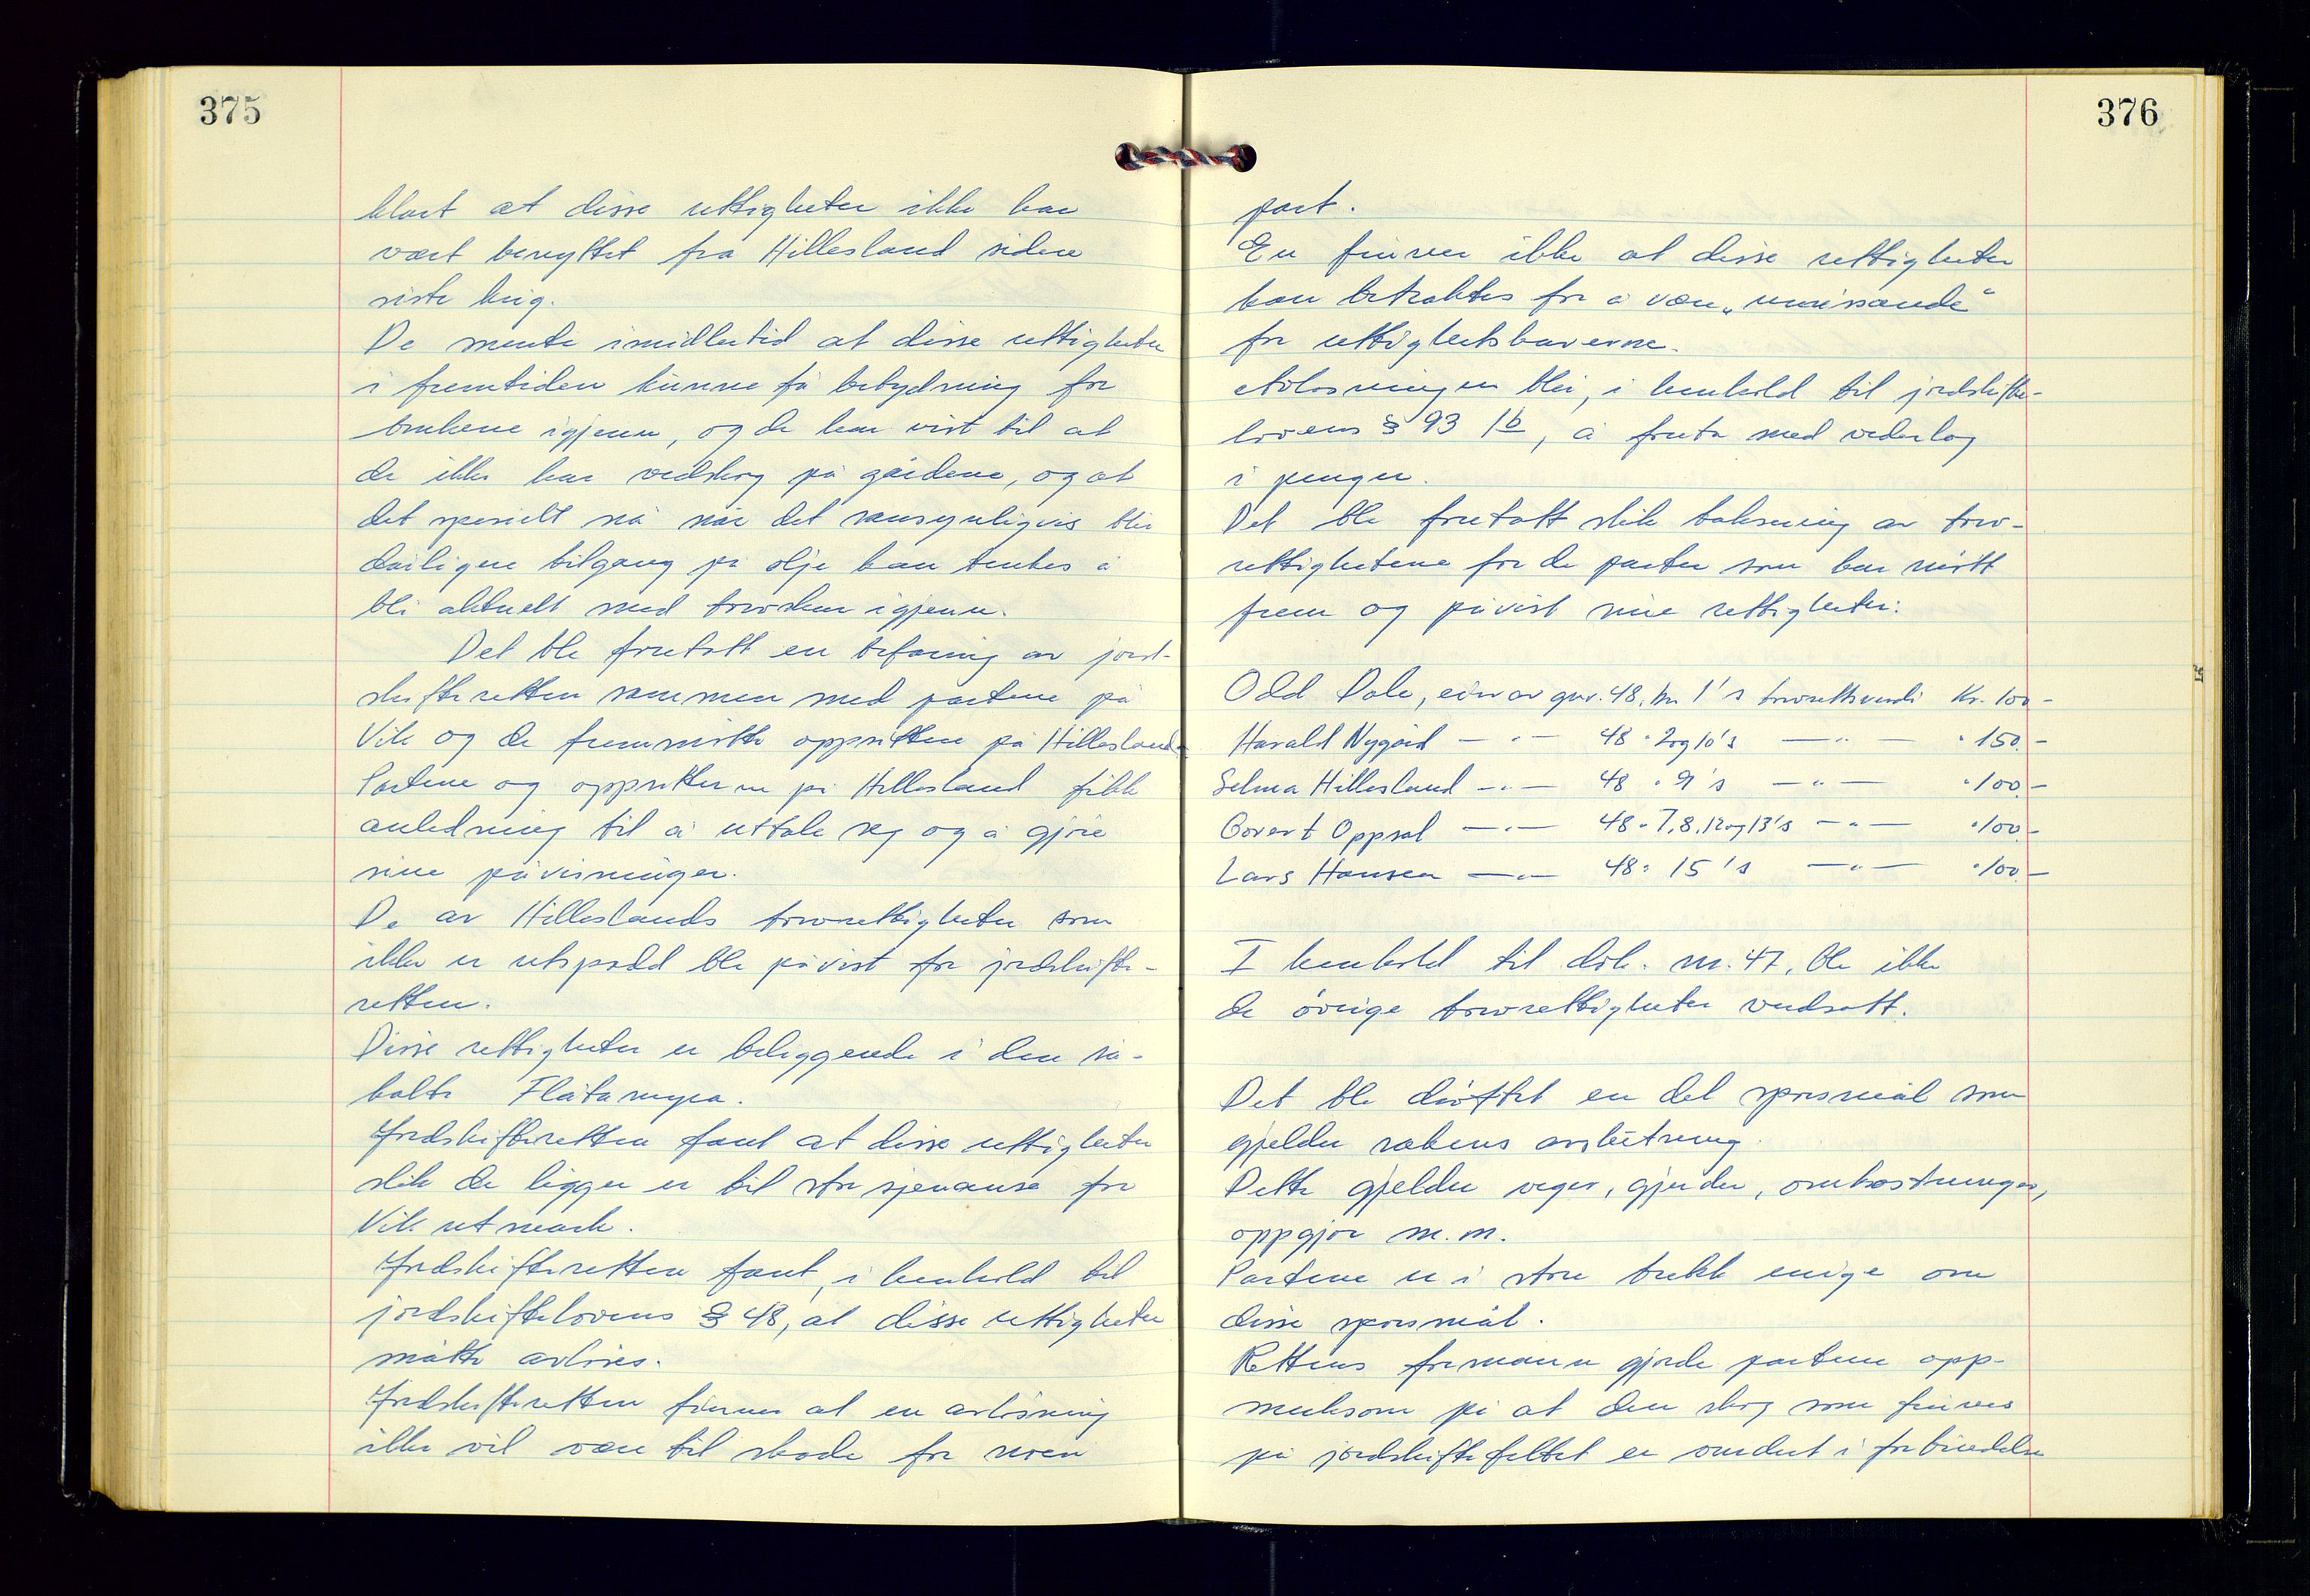 375
klart at disse rettigheter ikke har
vært benyttet fra Hillesland siden
siste krig.
De mente imidlertid at disse rettigheter
i fremtiden kunne få betydning for
brukene igjenn, og de har vist til at
de ikke har vedskog på gårdene, og at
det spesielt nå når det sansynligvis blir
dårligere tilgang på olje kan tenkes å
bli aktuelt med torvskur igjenn.
Det ble foretatt en befaring av jord-
skifteretten sammen med partene på
Vik og de fremmøtte oppsittere på Hillesland.
Partene og oppsitterne på Hillesland fikk
anledning til å uttale seg og å gjøre
sine påvisninger.
De av Hilleslands torvrettigheter som
ikke er utspadd ble påvist for jordskifte-
retten.
Disse rettigheter er beliggende i den så-
kalte Flåtamyra.
Jordskifteretten fant at disse rettigheter
slik de ligger er til stor sjenanse for
Vik utmark.
Jordskifteretten fant, i henhold til
jordskiftelovens § 48, at disse rettigheter
måtte avløses.
Jordskifteretten finner at en avløsning
ikke vil være til skade for noen
376
part.
En finner ikke at disse rettigheter
kan betraktes for å være „umissande"
for rettighetshaverne.
Avløsningen blir, i henhold til jordskifte-
lovens § 93 1b, å foreta med vederlag
i penger.
Det ble foretatt slik taksering av torv-
rettighetene for de parter som har møtt
frem og påvist sine rettigheter:
Odd Dale, eier av gnr. 48, bnr 1's torvrettsverdi Kr. 100-
Harald Nygård — " — 48 " 2 og 10's — " — " 150.-
Selma Hillesland — " — 48 " 9's — " — " 100.-
Govert Oppsal — " — 48 " 7, 8, 12 og 13's — " — " 100.-
Lars Hansen — " — 48 " 15's — " — " 100.-
I henhold til dok. nr. 47, ble ikke
de øvrige torvrettigheter verdsatt.
Det ble drøftet en del spørsmål som
gjelder sakens avslutning.
Dette gjelder veger, gjerder, omkostninger,
oppgjør m.m.
Partene er i store trekk enige om
disse spørsmål.
Rettens formann gjorde partene opp-
merksom på at den skog som finnes
på jordskiftefeltet er vurdert i forbindelse